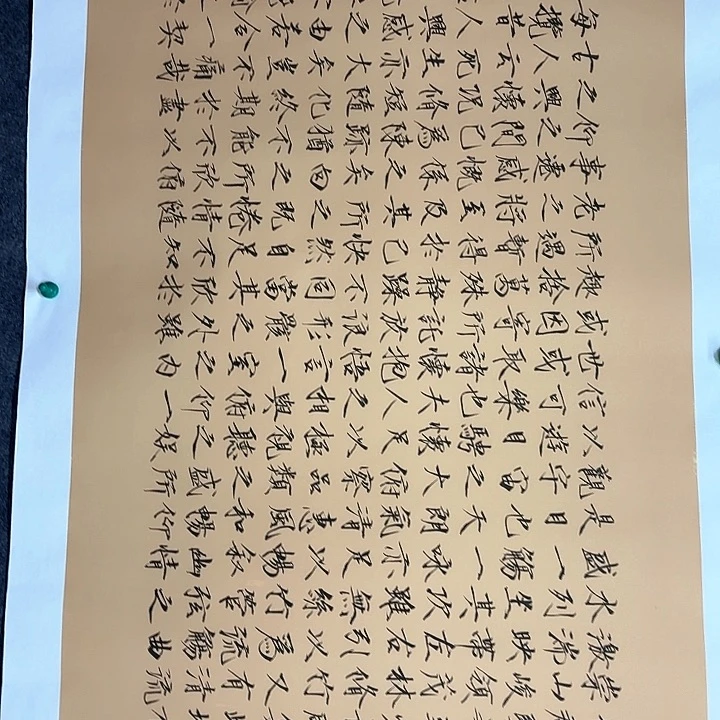 崇山峻領茂林脩竹又有清流
激湍映帶左右引以為流觴曲
水列坐其次雖無絲竹管弦之
盛一觴一詠亦足以暢敘幽情
是日也天朗氣清惠風和暢仰
觀宇宙之大俯察品類之盛所
以遊目騁懷足以極視聽之娛
信可樂也夫人之相與俯仰一
世或取諸懷抱悟言一室之內
或因寄所託放浪形骸之外雖
趣捨萬殊靜躁不同當其欣於
所遇暫得於己快然自足不知
老之將至及其所之既惓情隨
事遷感慨係之矣向之所欣俯
仰之間已為陳跡猶不能不以
之興懷況脩短隨化終期於盡
古人云死生亦大矣豈不痛哉
每攬昔人興感之由若合一契